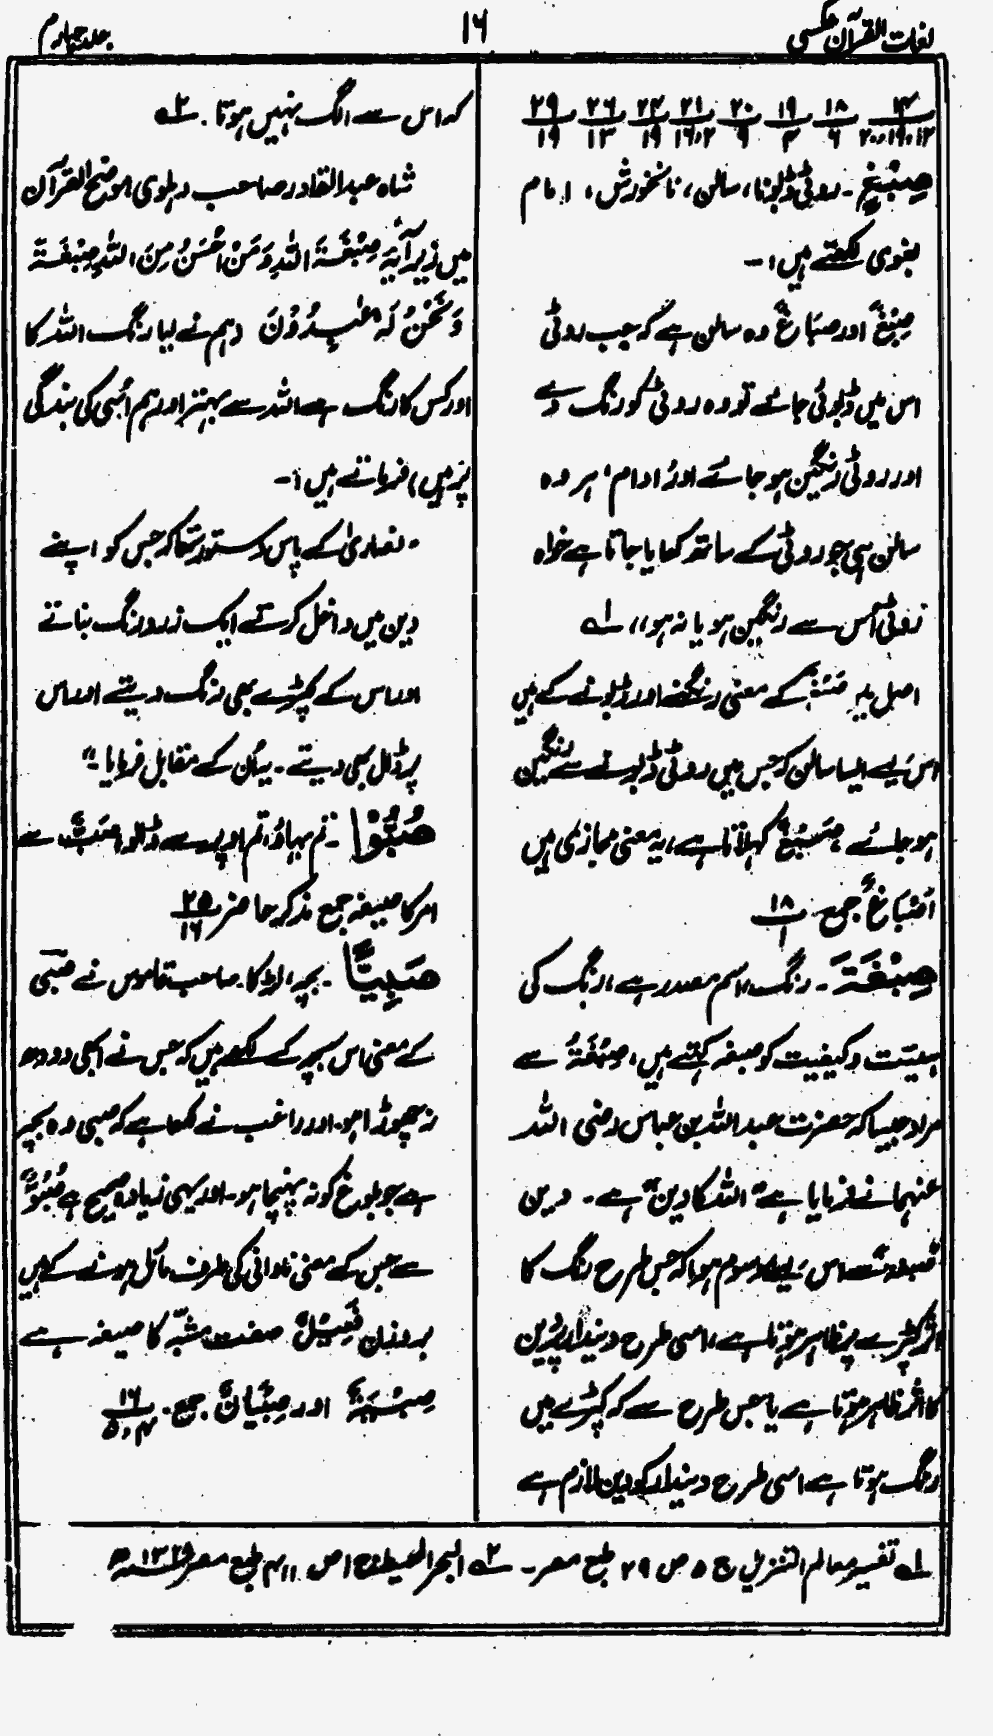 لغات القرآن عکسی
۱۶
جلد چہارم
۱۸/۶ ۱۹/۴ ۲۰/۹ ۲۱/۱۶،۲ ۲۴/۱۹ ۲۶/۱۳ ۲۹/۱۹
صِبْغٍ ۔ روٹی ڈبونا، سالن، نانخورش، امام
بغوی لکھتے ہیں :۔
صِبْغٌ اور صِبَاغٌ وہ سالن ہے کہ جب روٹی
اس میں ڈبوئی جائے تو وہ روٹی کو رنگ دے
اور روٹی رنگین ہو جائے اور ادام، ہر وہ
سالن ہی جو روٹی کے ساتھ کھایا جاتا ہے خواہ
روٹی اُس سے رنگین ہو یا نہ ہو،، لہ
اصل میں صَبْغٌ کے معنی رنگنے اور ڈبونے کے ہیں
اس لیے ایسا سالن کہ جس میں روٹی ڈبونے سے رنگین
ہو جائے صِبْغٌ کہلاتا ہے، یہ معنی مجازی ہیں
اَصْبَاغٌ جمع ۱۸/۱
صِبْغَةَ ۔ رنگ، اسم مصدر ہے، رنگ کی
ہیئت و کیفیت کو صبغہ کہتے ہیں، صِبْغَةُ سے
مراد جیسا کہ حضرت عبداللہ بن عباس رضی اللہ
عنہما نے فرمایا ہے “اللہ کا دین” ہے ۔ دین
اس لیے موسوم ہوا کہ جس طرح رنگ کا
اثر کپڑے پر ظاہر ہوتا ہے، اسی طرح دیندار پر دین
کا اثر ظاہر ہوتا ہے یا جس طرح سے کہ کپڑے میں
رنگ ہوتا ہے اسی طرح دیندار کو دین لازم ہے
کہ اس سے الگ نہیں ہوتا ۔ ۲ہ
شاہ عبدالقادر صاحب دہلوی موضح القرآن
میں زیر آیہ صِبْغَةَ اللّٰهِ وَمَنْ اَحْسَنُ مِنَ اللّٰهِ صِبْغَةً
وَنَحْنُ لَهٗ عٰبِدُوْنَ (ہم نے لیا رنگ اللہ کا
اور کس کا رنگ ہے اللہ سے بہتر اور ہم اُسی کی بندگی
پر ہیں) فرماتے ہیں :۔
“نصاریٰ کے پاس دستور تھا کہ جس کو اپنے
دین میں داخل کرتے ایک زرد رنگ بناتے
اور اس کے کپڑے بھی رنگ دیتے اور اس
پر ڈال بھی دیتے ۔ یہ اُن کے مقابل فرمایا ۔”
صُبُّوْا ۔ تم بہاؤ، تم اوپر سے ڈالو صَبٌّ سے
امر کا صیغہ جمع مذکر حاضر ۲۵/۱۶
صَبِيًّا ۔ بچہ، لڑکا ۔ صاحب قاموس نے صَبِیّ
کے معنی اس بچہ کے لکھے ہیں کہ جس نے ابھی دودھ
نہ چھوڑا ہو ۔ اور راغب نے لکھا ہے کہ صبی وہ بچہ
ہے جو بلوغ کو نہ پہنچا ہو ۔ اور یہی زیادہ صحیح ہے صُبُوٌّ
سے جس کے معنی نادانی کی طرف مائل ہونے کے ہیں
بروزن فَعِیْلٌ صفت مشبّہ کا صیغہ ہے
صِبْیَةٌ اور صِبْیَانٌ جمع ۔ ۱۶/۴،۵
لہ تفسیر معالم التنزیل ج ۵ ص ۲۹ طبع مصر ۔ ۲ہ البحر المحیط ج ۱ ص ۴۱۱ طبع مصر ۱۳۲۸ھ